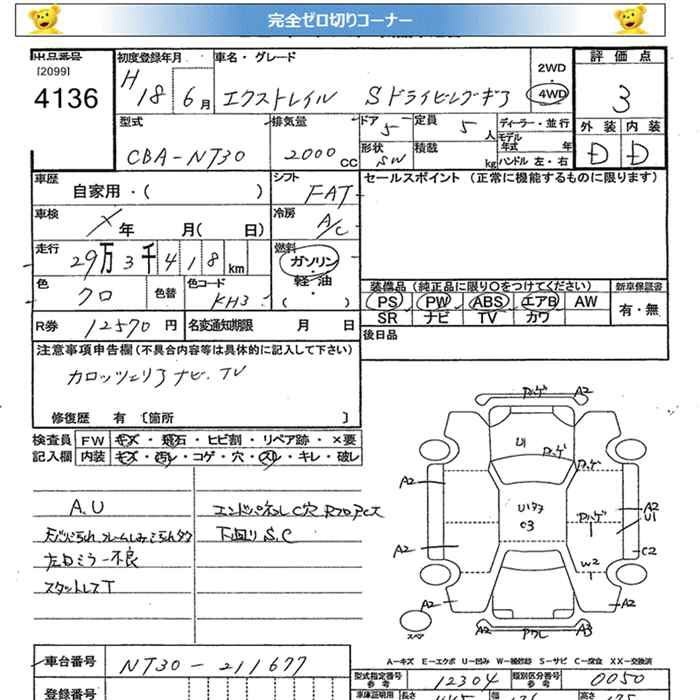 完全ゼロ切りコーナー
出品番号 初度登録年月 車名・グレード 2WD・4WD 評価点
[2099]
4136 H18 6月 エクストレイル Sドライビングギア 3
型式 排気量 ドア 定員 ディーラー・並行 外装 内装
CBA-NT30 2000cc 5 5人 モデル年式 年 D D
形状 SW 積載 kg ハンドル 左・右
車歴 自家用・( ) シフト FAT セールスポイント (正常に機能するものに限ります)
車検 × 年 月( 日) 冷房 A/C
走行 29万3千418km 燃料 ガソリン・軽油・( )
色 クロ 色替 色コード KH3
装備品 (純正品に限り〇をつけてください) 新車保証書
PS PW ABS エアB AW 有・無
SR ナビ TV カワ
R券 12570円 名変通知期限 月 日 後日品
注意事項申告欄 (不具合内容等は具体的に記入して下さい)
カロッツェリアナビ.TV
修復歴 有 〔箇所 〕
検査員 FW キズ・飛石・ヒビ割・リペア跡・×要
記入欄 内装 キズ・汚レ・コゲ・穴・スリ・キレ・破レ
A.U エンドパネルC穴
下回りS.C
左ドミラー不良
スタットレスT
ハゲ A2
U1 ハゲ
ハゲ
A2 A2 U1
C3 ハゲ
A2 W2 C2
A2 A2
スペア A2 アワレ A3
A-キズ E-エクボ U-凹み W-補修跡 S-サビ C-腐食 XX-交換済
車台番号 NT30-211677
型式指定番号 参考 12304 類別区分番号 参考 0050
登録番号 車庫証明用 長さ 幅 高さ